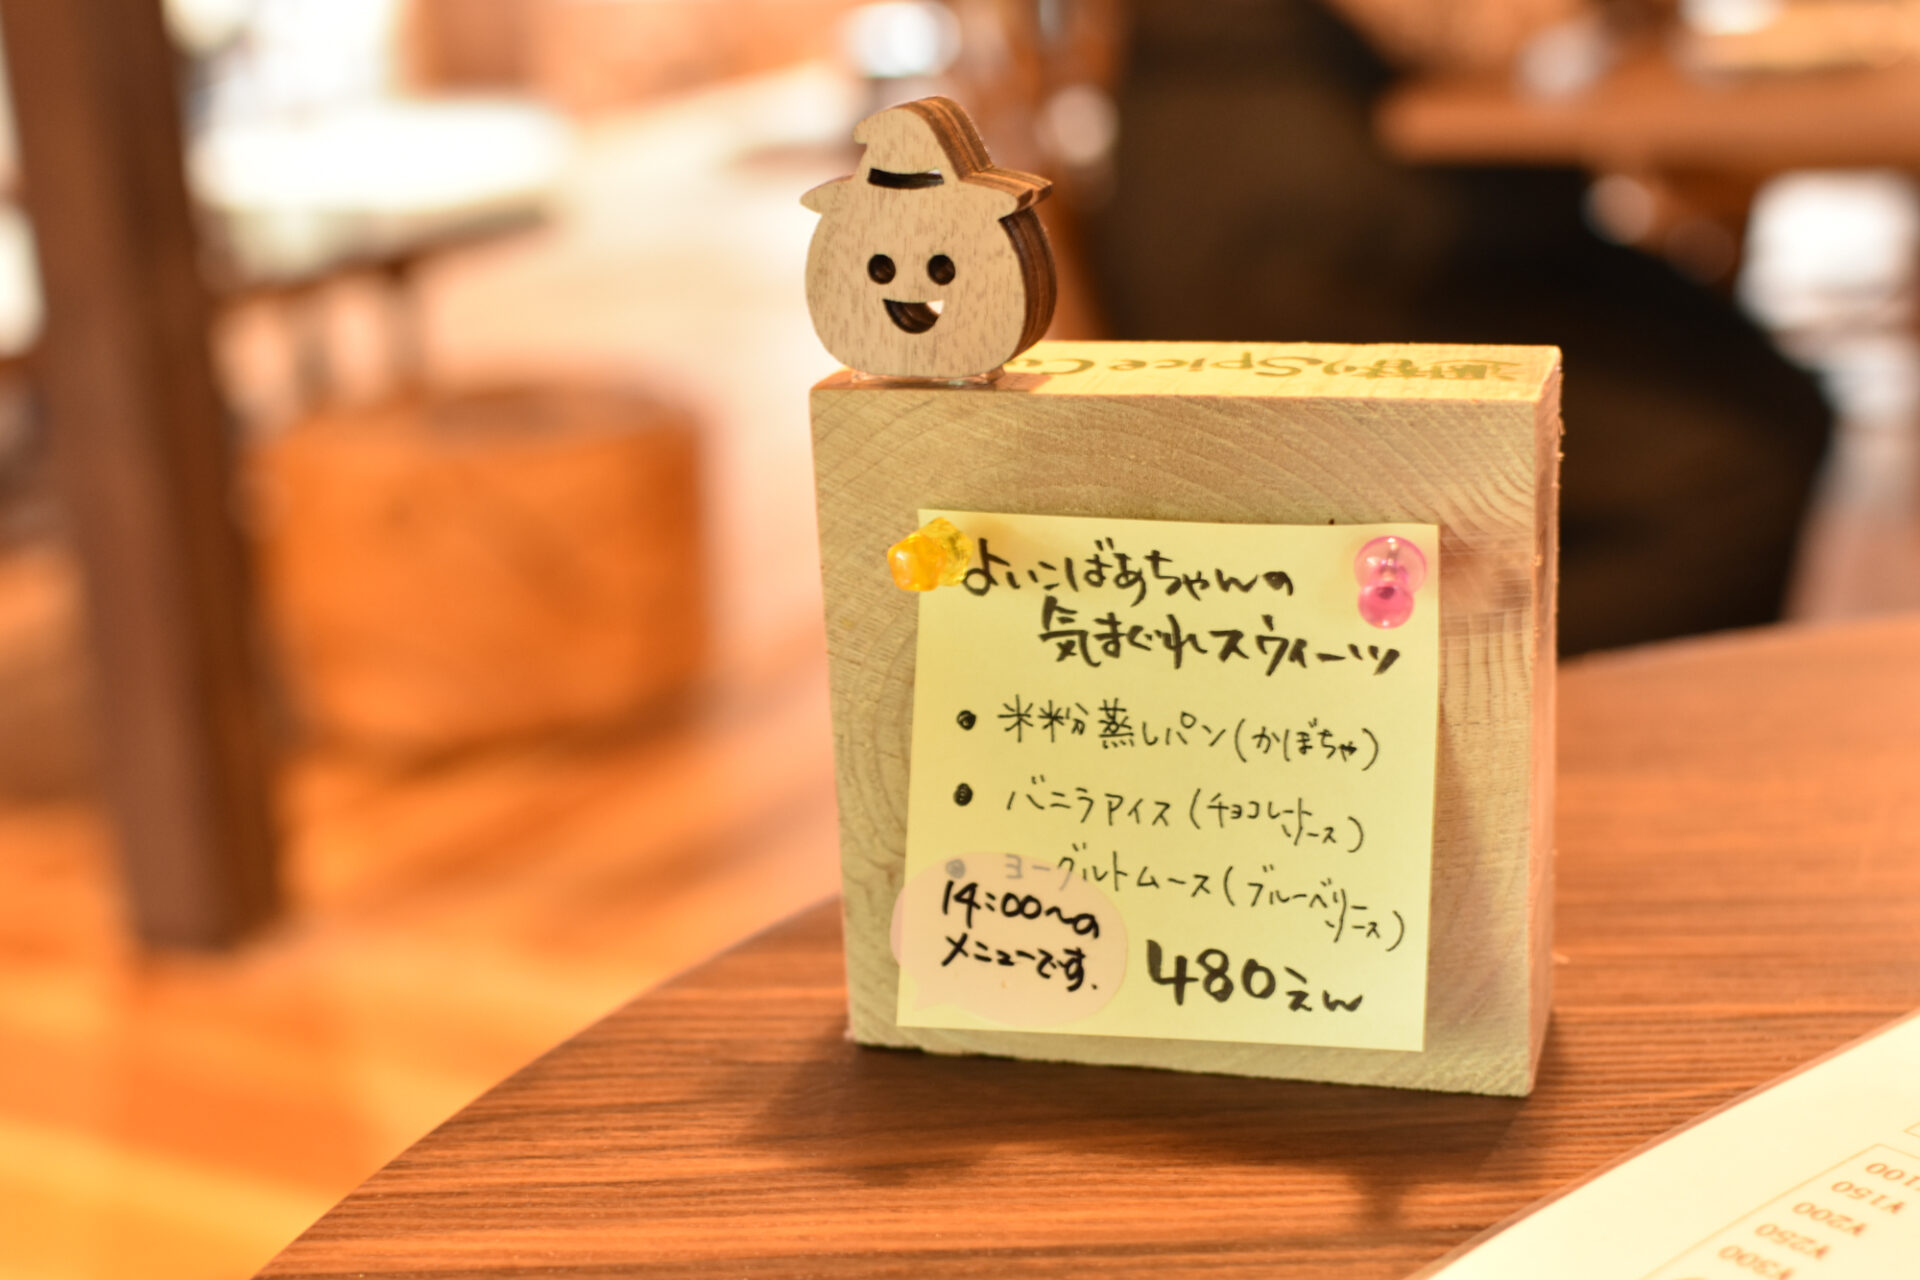 Spice
よいこばあちゃんの
気まぐれスウィーツ
● 米粉蒸しパン(かぼちゃ)
● バニラアイス(チョコレートソース)
● ヨーグルトムース(ブルーベリーソース)
14:00〜の
メニューです.
480えん
¥100
¥150
¥200
¥250
¥300